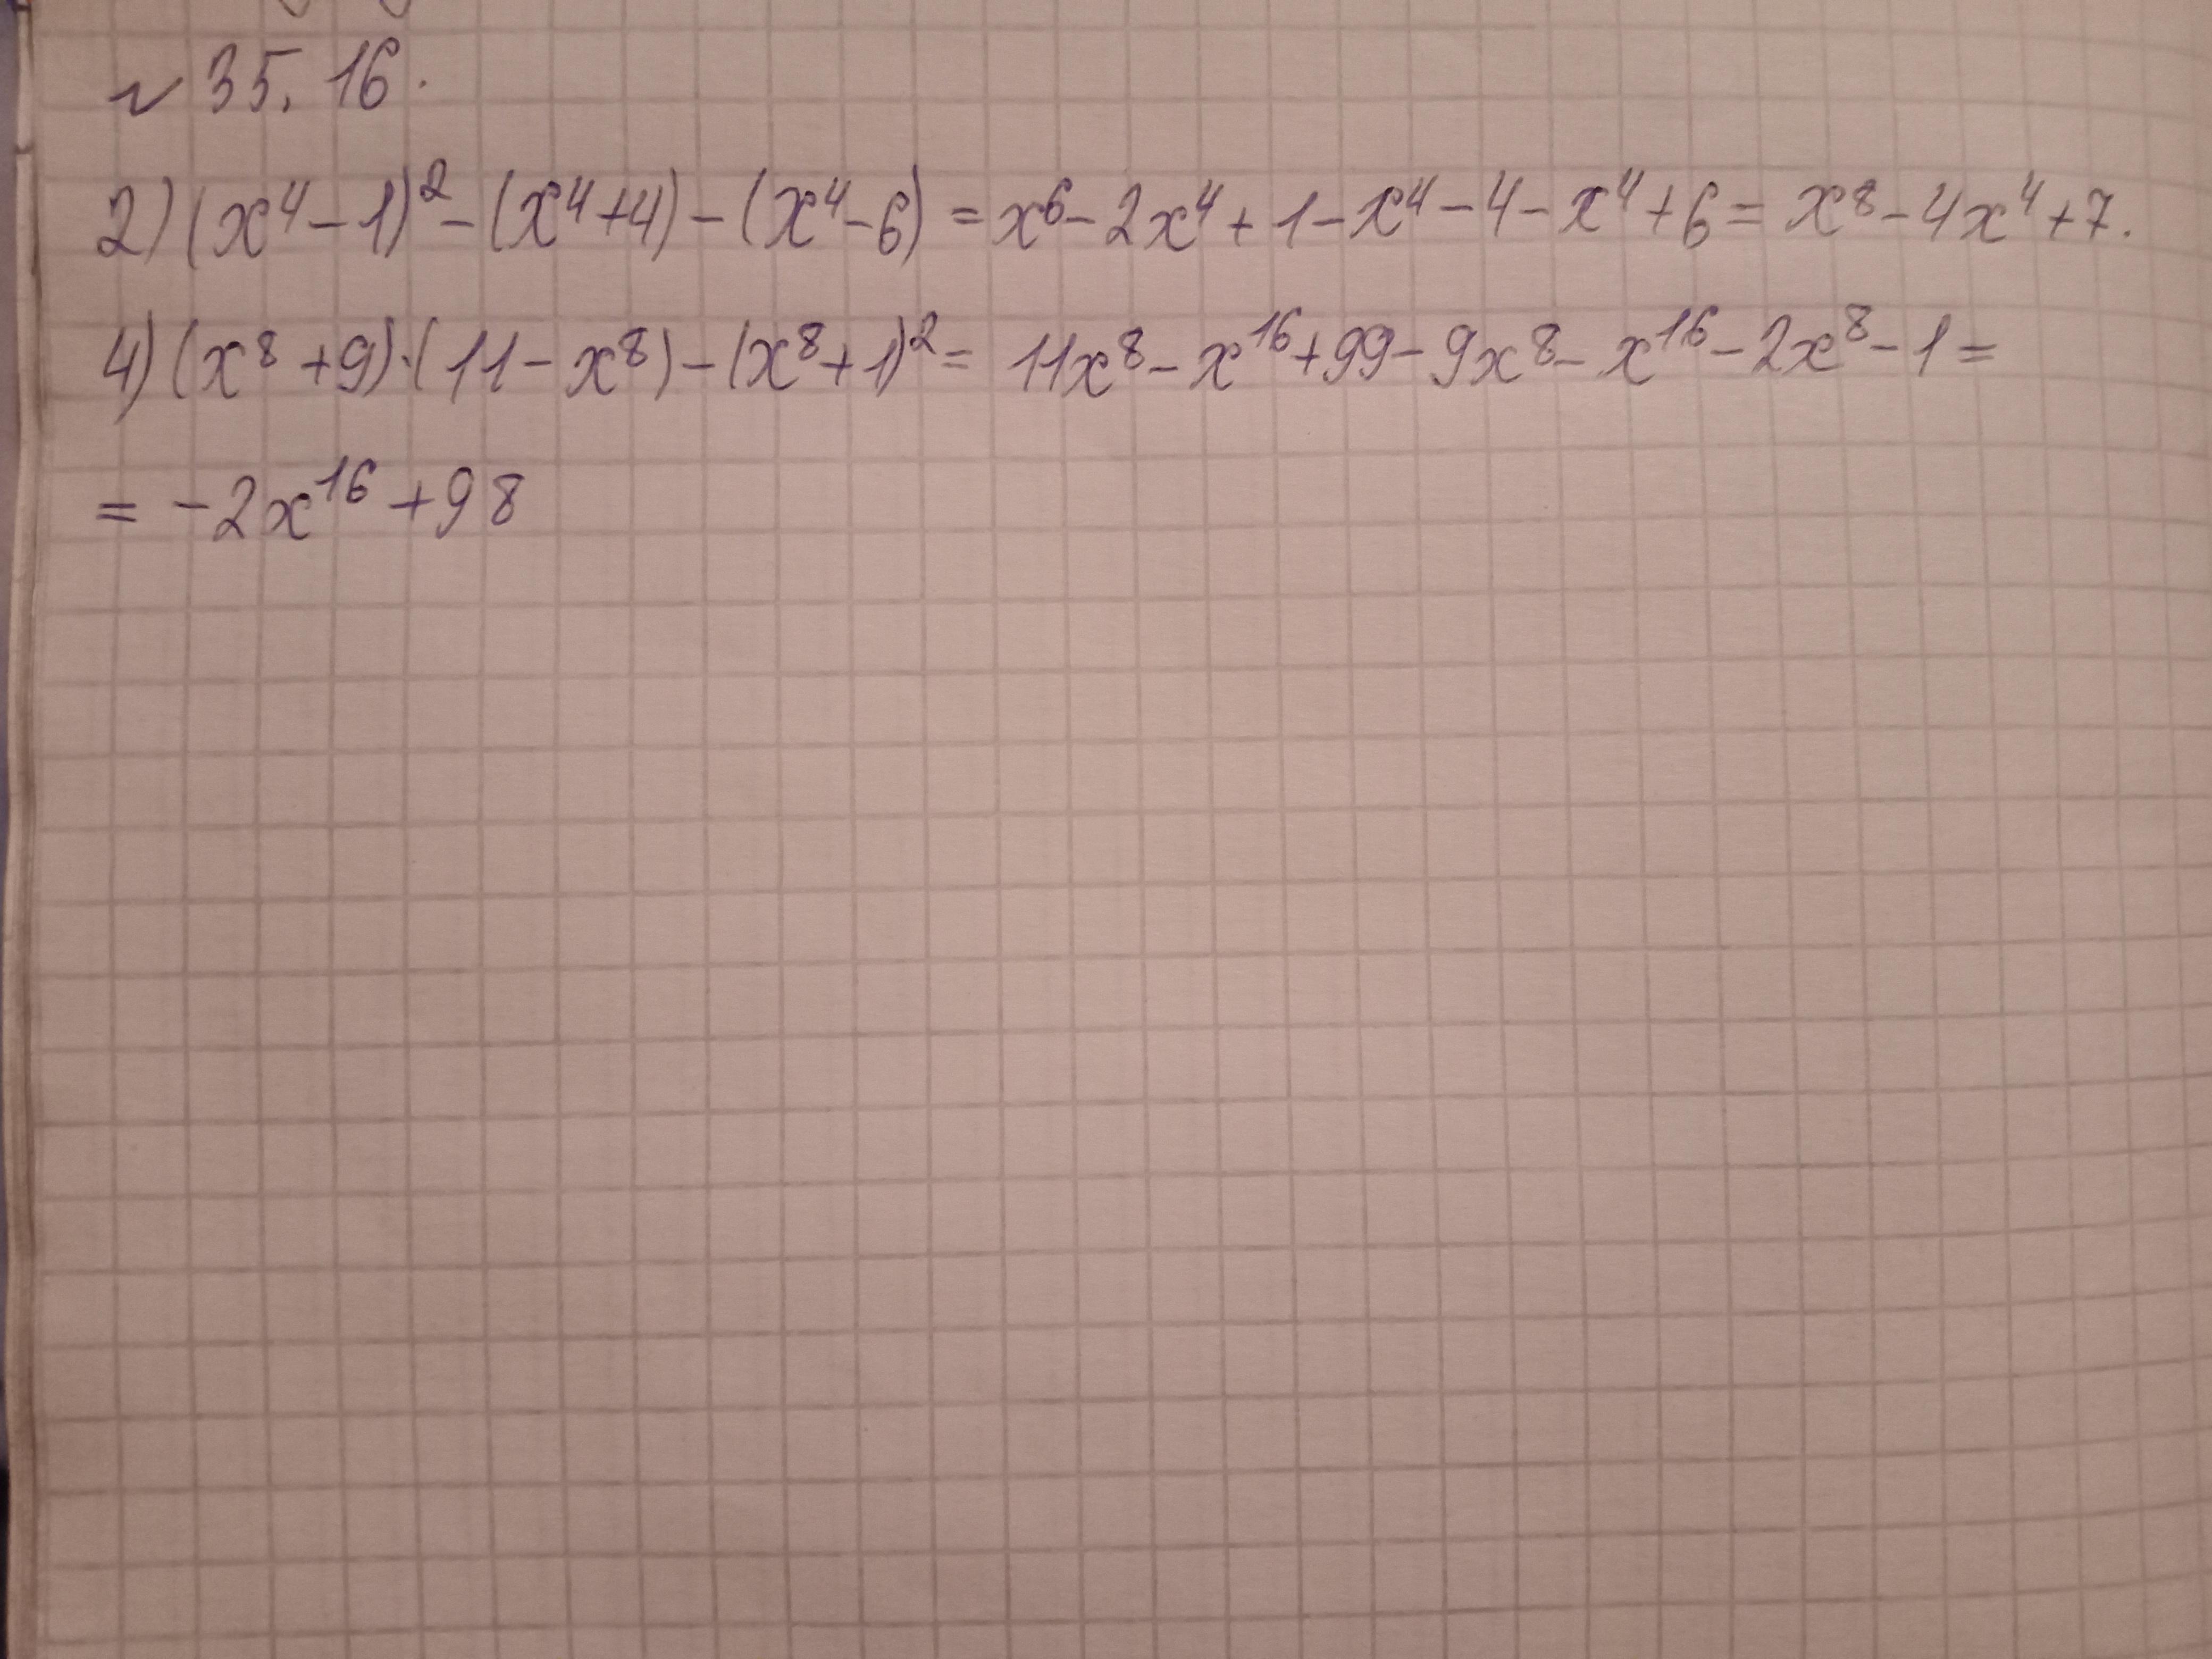 № 35.16.
2) (x⁴ - 1)² - (x⁴ + 4) - (x⁴ - 6) = x⁶ - 2x⁴ + 1 - x⁴ - 4 - x⁴ + 6 = x⁸ - 4x⁴ + 7.
4) (x⁸ + 9) · (11 - x⁸) - (x⁸ + 1)² = 11x⁸ - x¹⁶ + 99 - 9x⁸ - x¹⁶ - 2x⁸ - 1 =
= -2x¹⁶ + 98